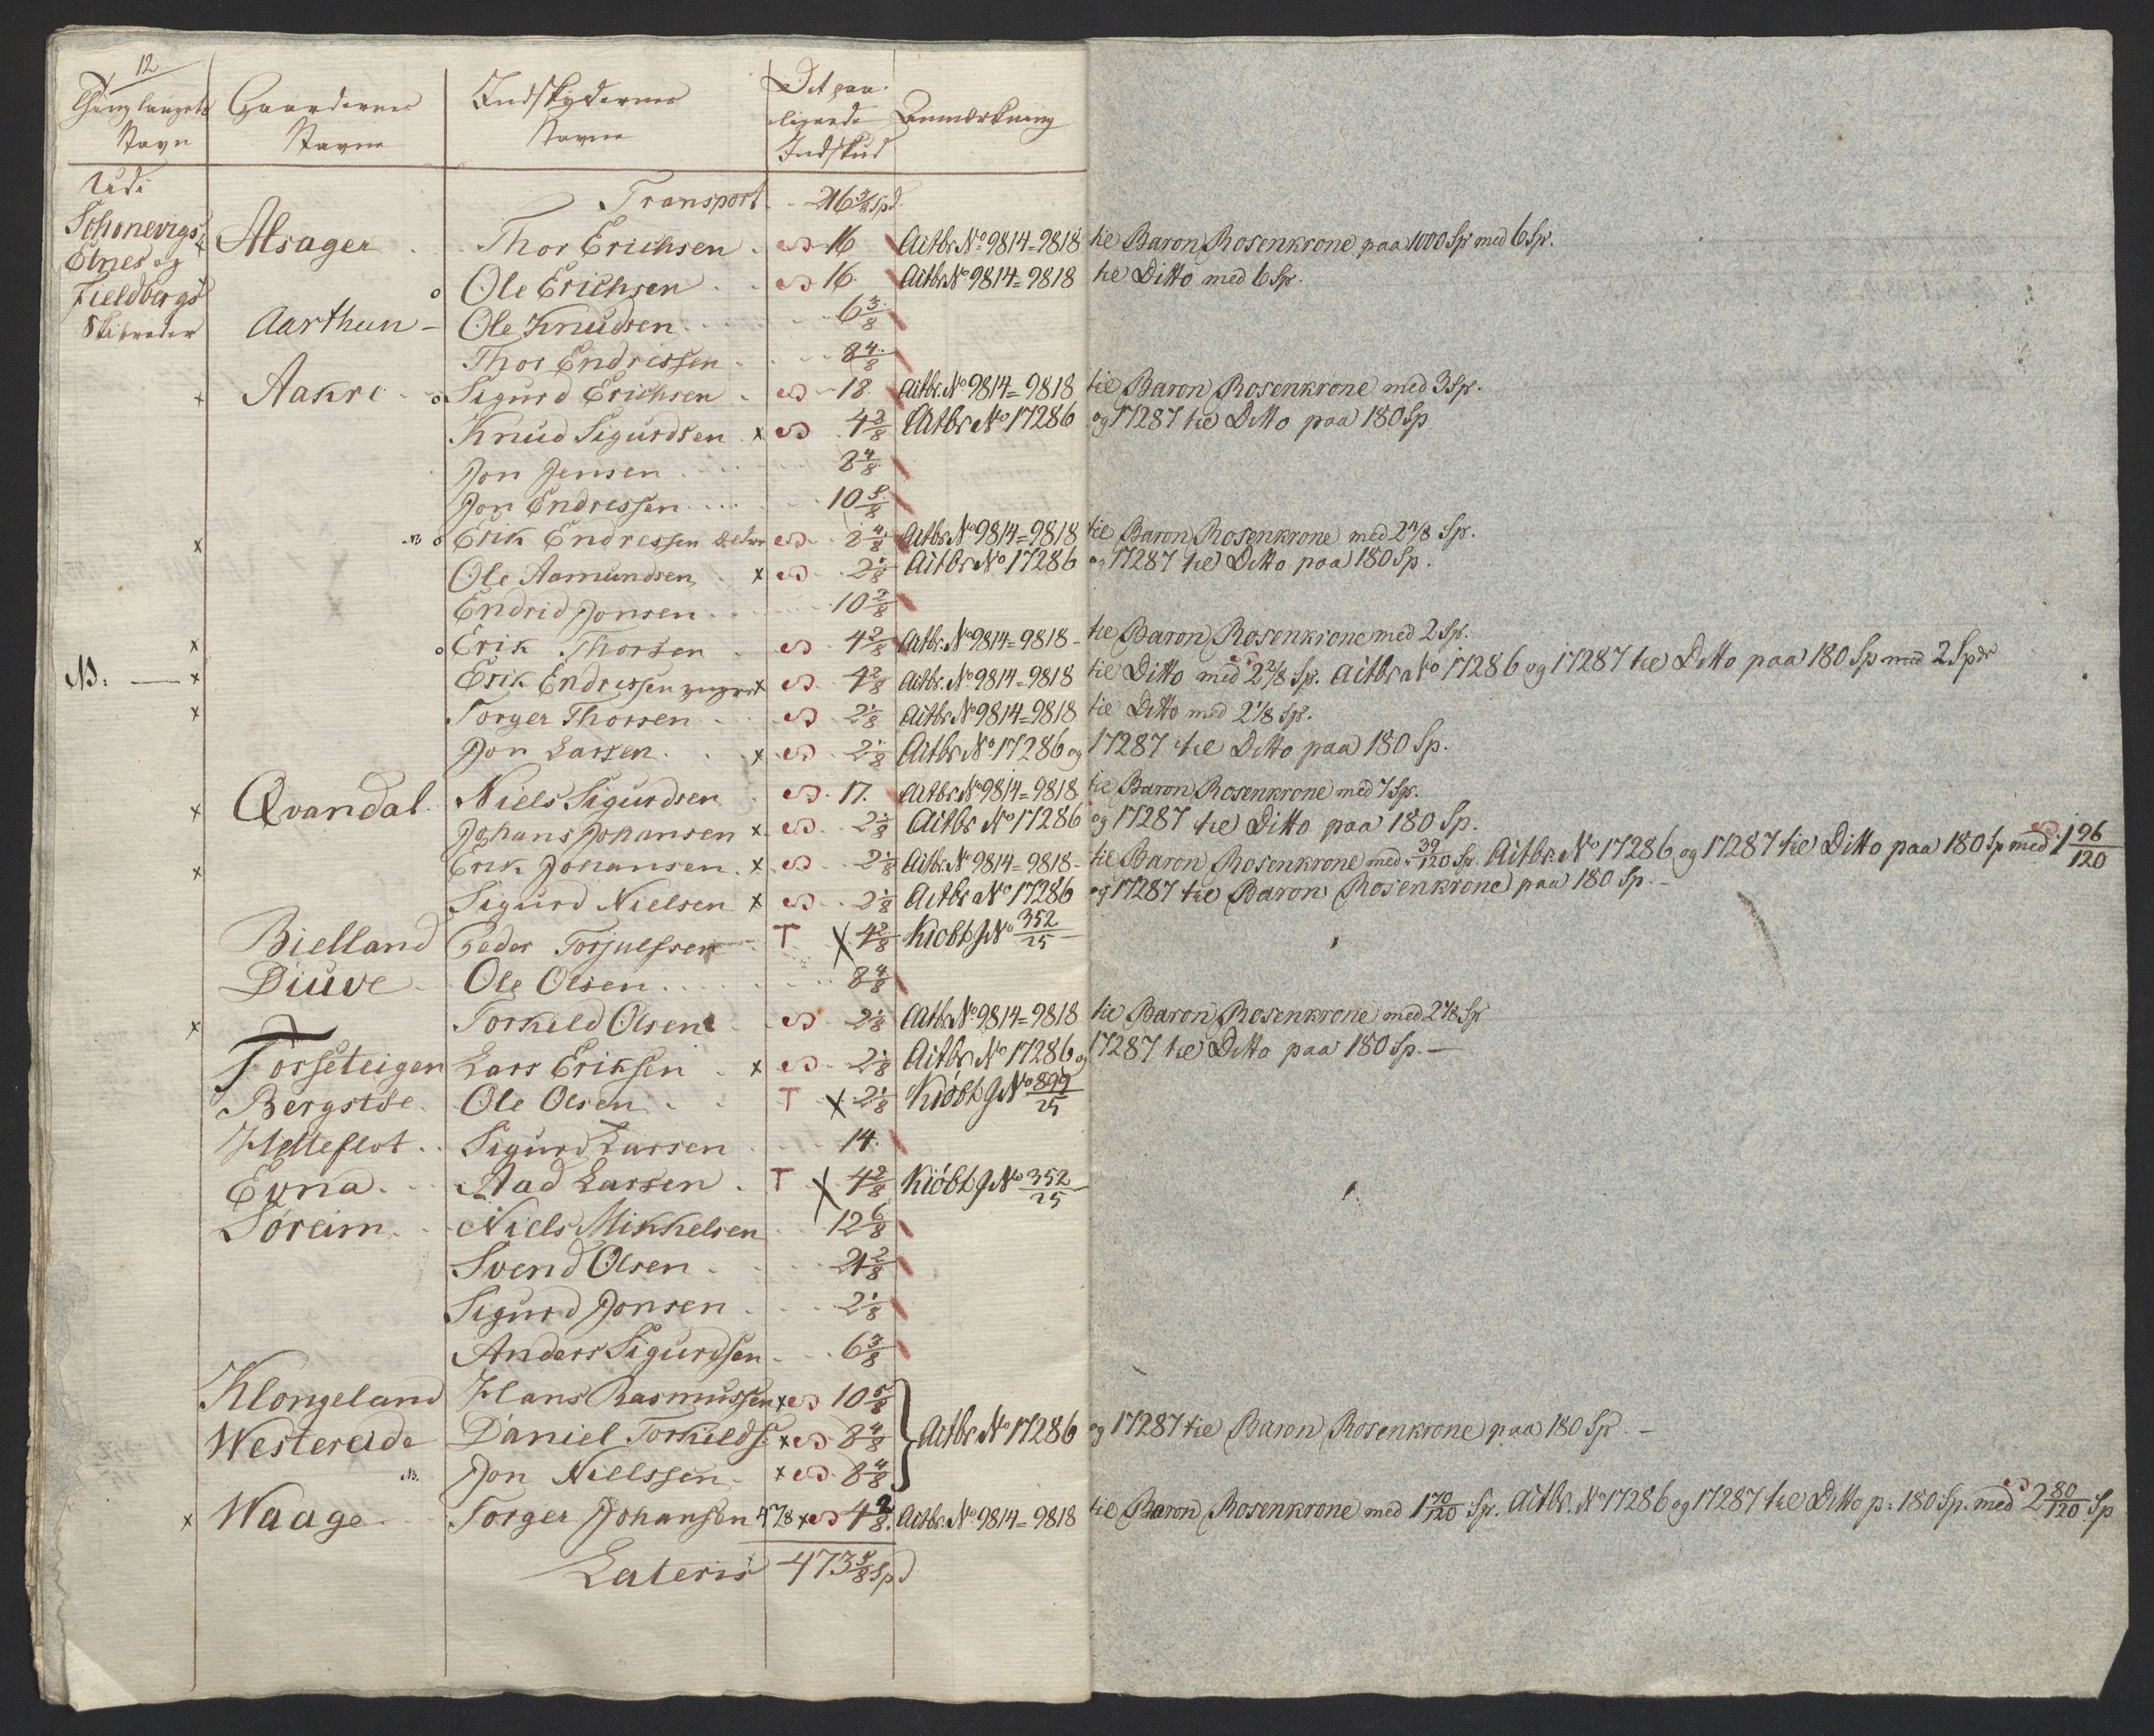 12
Thinglaugets Navn | Gaardernes Navne | Indskydernes Navne | Det paalignede Indskud | Anmærkning
Udi Schonevigs, Etnes og Fieldbergs Skibreder
Transport 216 3/8 Spd.
Alsager Thor Erichsen 16 Actbr. No 9814=9818 til Baron Rosenkrone paa 1000 Sp med 6 Sp.
o Ole Erichsen 16. Actbr. No 9814=9818 til Ditto med 6 Sp.
Aarthun Ole Knudsen 6 3/8
Thor Endressen 8 4/8
x Aakre o Sigurd Erichsen 18. Actbr. No 9814=9818 til Baron Rosenkrone med 3 Sp.
Knud Sigurdsen x 4 2/8 Actbr No 17286 og 17287 til Ditto paa 180 Sp
Jon Jensen 8 4/8
Jon Endressen 10 5/8
x NB o Erik Endressen ældre 8 4/8 Actbr. No 9814=9818 til Baron Rosenkrone med 2 4/8 Sp.
Ole Aamundsen x 2 1/8 Actbr No 17286 og 17287 til Ditto paa 180 Sp.
Endrid Jonsen 10 5/8
x o Erik Thorsen 4 2/8 Actbr. No 9814=9818 til Baron Rosenkrone med 2 Sp.
NB. x Erik Endressen yngre x 4 2/8 Actbr. No 9814=9818 til Ditto med 2 2/8 Sp. Actbr No 17286 og 17287 til Ditto paa 180 Sp med 2 Spdr
x Torger Thorsen 2 1/8 Actbr No 9814=9818 til Ditto med 2 1/8 Sp.
Jon Larsen x 2 1/8 Actbr No 17286 og 17287 til Ditto paa 180 Sp.
x Qvandal Niels Sigurdsen 17. Actbr No 9814=9818 til Baron Rosenkrone med 7 Sp.
Johans Johansen x 2 1/8 Actbr No 17286 og 17287 til Ditto paa 180 Sp.
x Erik Johansen x 2 1/8 Actbr. No 9814=9818 til Baron Rosenkrone med 39/120 Sp. Actbr. No 17286 og 17287 til Ditto paa 180 Sp med 1 96/120
Sigurd Nielsen x 2 1/8 Actbr No 17286 og 17287 til Baron Rosenkrone paa 180 Sp.
Bielland Peder Torjulsen T X 4 2/8 Kiöbt J No 352/25
Diuve Ole Olsen 8 4/8
x Torkild Olsen 2 1/8 Actbr. No 9814=9818 til Baron Rosenkrone med 2 1/8 Sp
Torseteigen Lars Eriksen x 2 1/8 Actbr No 17286 og 17287 til Ditto paa 180 Sp.
Bergstöe Ole Olsen T X 2 1/8 Kiöbt J No 899/25
Helleflot Sigurd Larsen 14.
Evna Aad Larsen T X 4 2/8 Kiöbt J No 352/25
Söreim Niels Mikkelsen 12 6/8
Svend Olsen 21 2/8
Sigurd Jonsen 2 1/8
Anders Sigurdsen 6 3/8
Klongeland Hans Rasmussen x 10 5/8
Westereide Daniel Torkilds. x 8 4/8 Actbr No 17286 og 17287 til Baron Rosenkrone paa 180 Sp.
NB. Jon Nielssen x 8 4/8
x Waage Torger Johansen 478 x 4 2/8 Actbr. No 9814=9818 til Baron Rosenkrone med 1 70/120 Sp. Actbr. No 17286 og 17287 til Ditto p. 180 Sp. med 2 80/120 Sp
Lateris 473 4/8 Spd